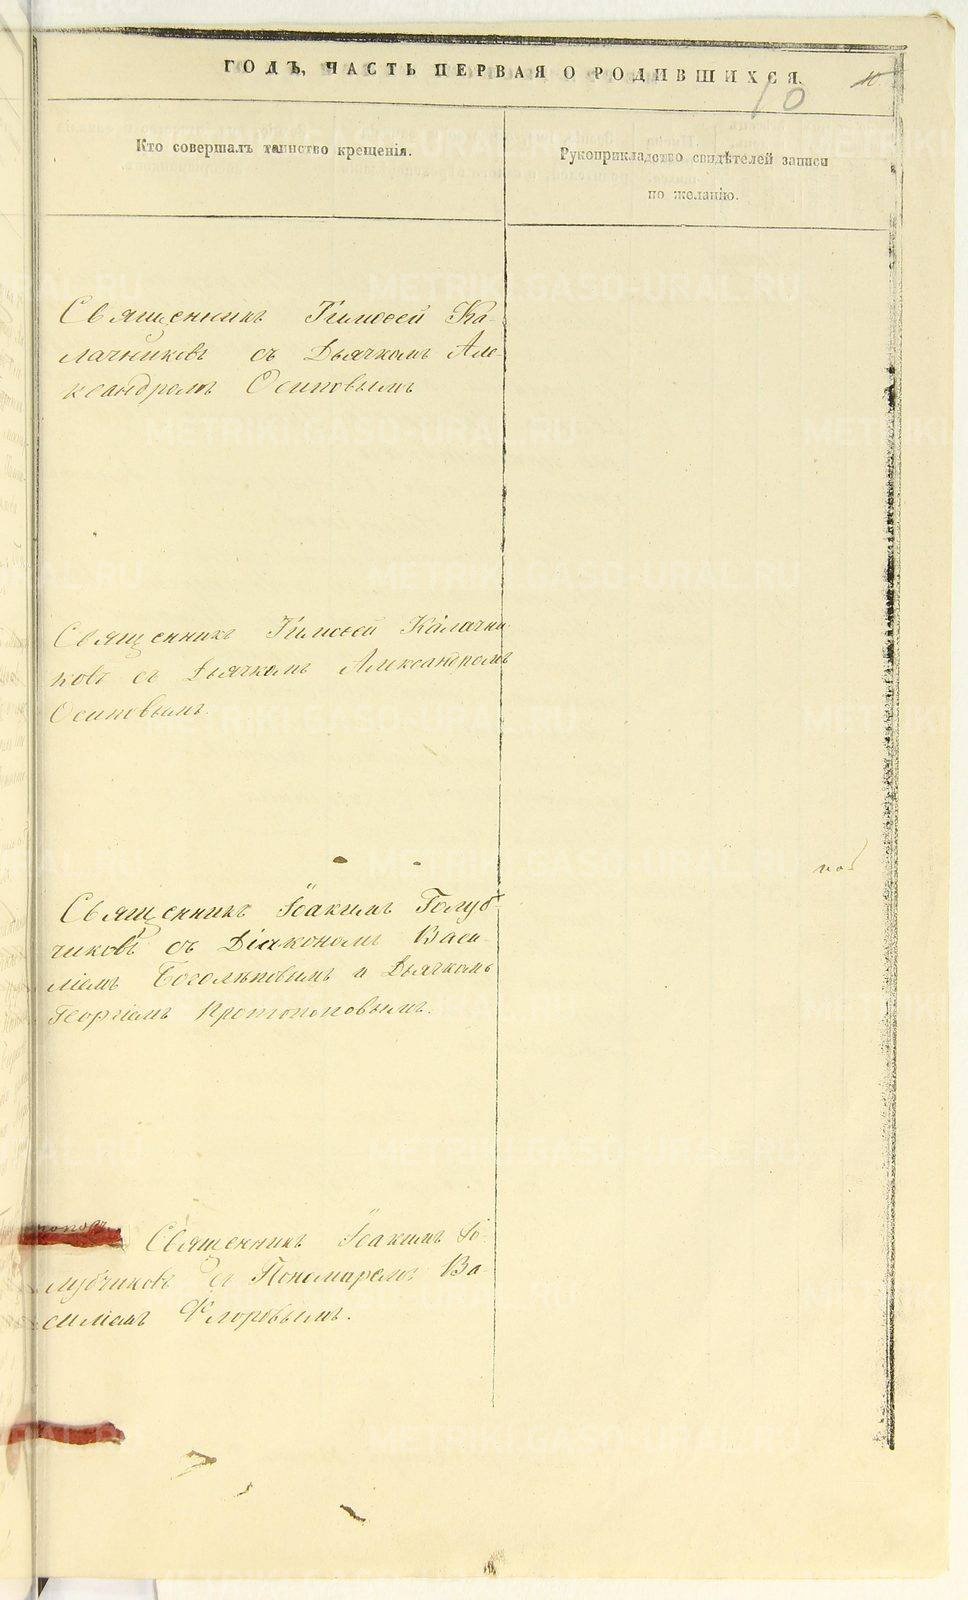 ГОДЪ, ЧАСТЬ ПЕРВАЯ О РОДИВШИХСЯ.
10
10
Кто совершалъ таинство крещенія.
Рукоприкладство свидѣтелей записи
по желанію.
Священникъ Тимофей Ка-
лачниковъ съ Дьячкомъ Але-
ксандромъ Осиповымъ
Священникъ Тимофей Калачни
ковъ съ Дьячкомъ Александромъ
Осиповымъ.
Священникъ Іоакимъ Голуб
чиковъ съ Діакономъ Васи-
ліемъ Боголѣповымъ и Дьячкомъ
Георгіемъ Протопоповымъ.
Священникъ Іоакимъ Го-
лубчиковъ съ Пономаремъ Ва-
силіемъ Флоровымъ.
METRIKI.GASO-URAL.RU